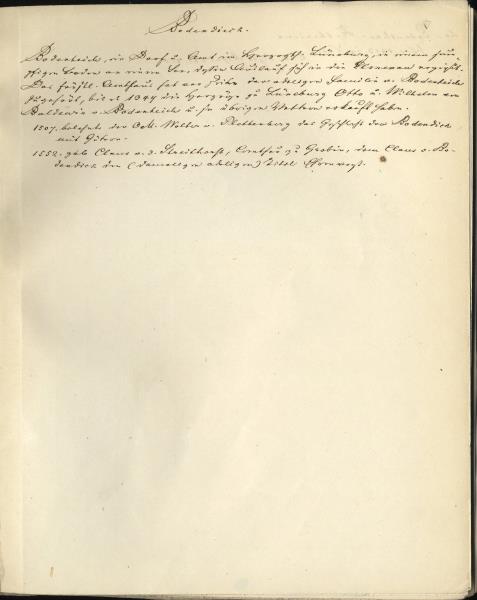 Bodendieck.
Bodenteich, ein Dorf u. Amt im Herzogth. Lüneburg, in einem
Boden an einem See, dessen Ausfluß sich in die Ilmenau ergießt.
Das fürstl. Amthaus hat vor der adligen Familie v. Bodenteich
zugehört, bis die Herzöge zu Lüneburg Otto u. Wilhelm von
Balduin v. Bodenteich u. übrigen Vettern erkauft haben.
1507. belehnte der OM. Wolter v. Plettenberg das Geschlecht der Bodendieck
mit Gütern.
1552. gab Claus v. d. Streithorst, Comthur zu Grobin, dem Claus v. Bo-
dendieck den (damaligen adeligen) Titel Ehrenvest.